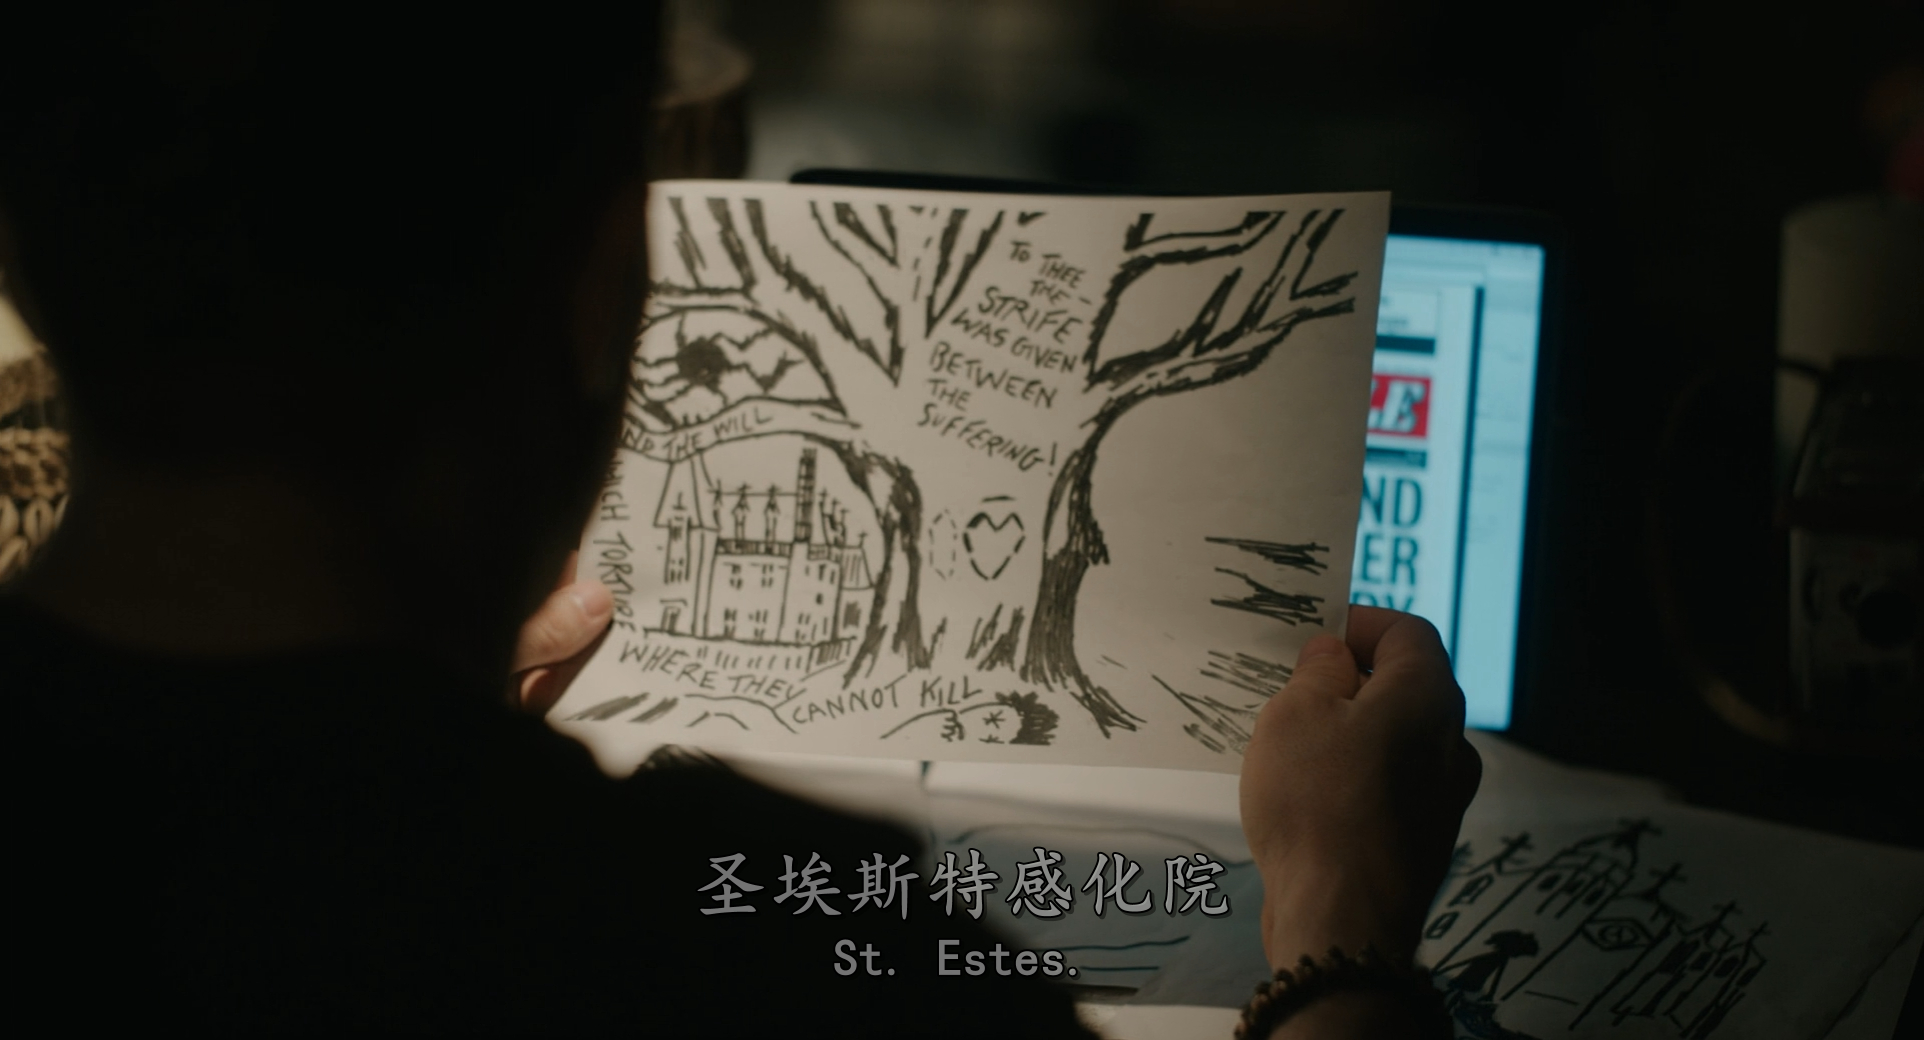 TO THEE
THE -
STRIFE
WAS GIVEN
BETWEEN
THE
SUFFERING!
THE WILL
TORTURE
WHERE THEY
CANNOT KILL
LE
ND
ER
RY
圣埃斯特感化院
St. Estes.